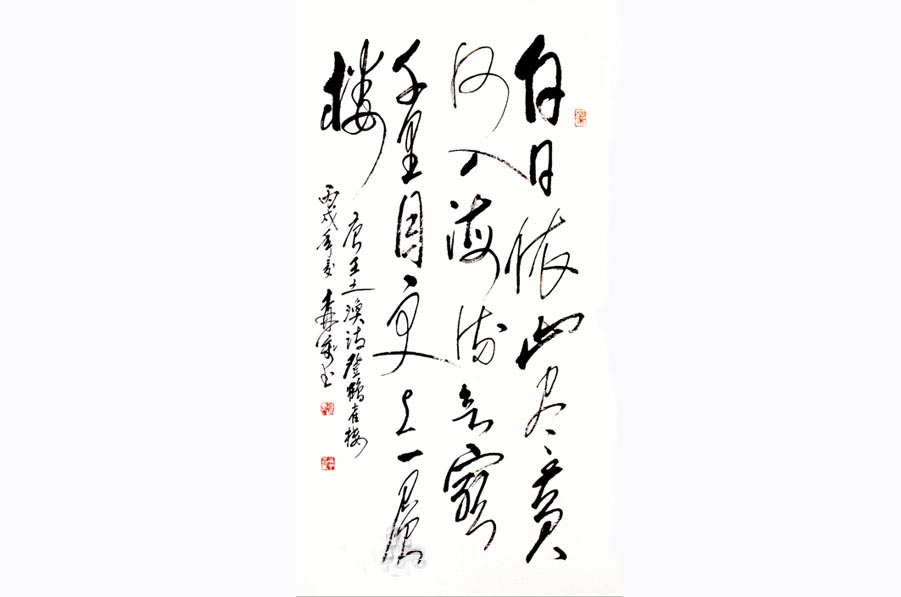 白日依山尽黄
河入海流欲窮
千里目更上一层
楼
唐王之涣诗登鹳雀楼
丙戌年 书